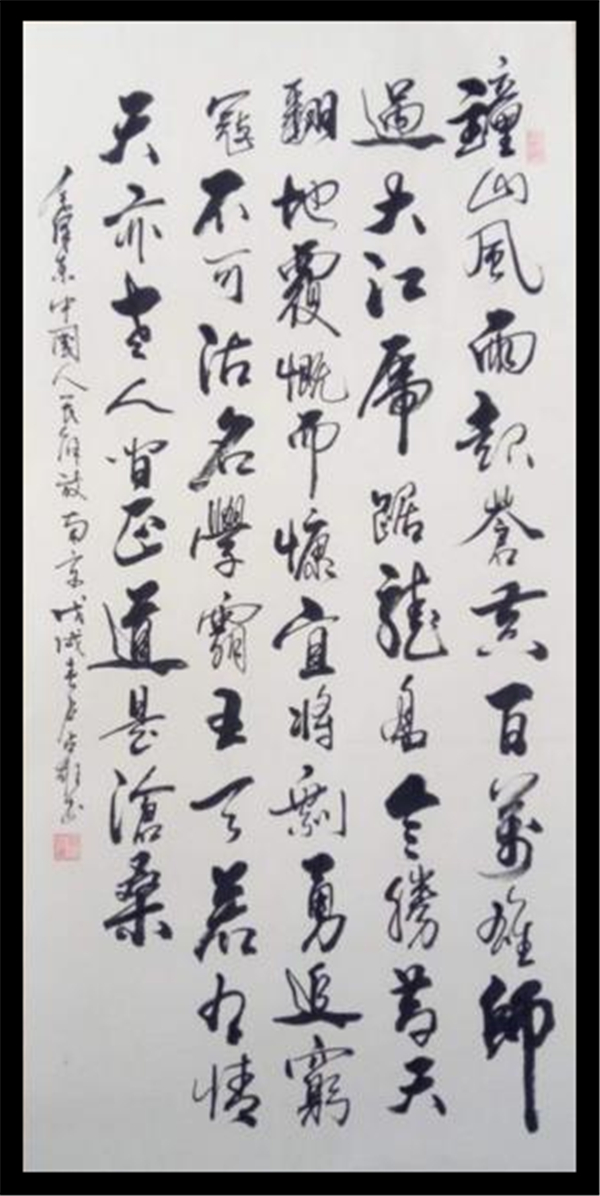 鐘山風雨起蒼黄百萬雄師
過大江虎踞龍盤今勝昔天
翻地覆慨而慷宜將剩勇追窮
寇不可沽名學霸王天若有情
天亦老人間正道是滄桑
毛澤東中國人民解放南京戊戌春月書